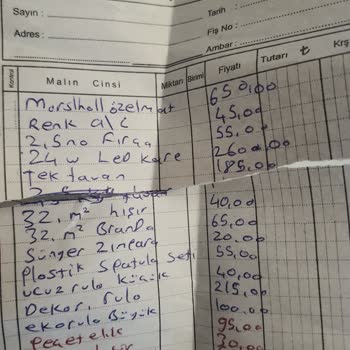 Sayın :
Adres :
Tarih :
Fiş No :
Ambar :
Kontrol Malın Cinsi Miktarı Birimi Fiyatı Tutarı ₺ Krş
Marslhall özelmat 650,00
Renk a/c 45,00
2,5 no Fırça 55,00
24 w Led kare 260,00
Tek tavan 185,00
32. m² hışır 40,00
32. m² Branda 65,00
Sünger Zımpara 20,00
plastik Spatula Seti 55,00
ucuz rulo küçük 40,00
Dekor. rulo 215,00
ekorulo Büyük 100,00
95,00
30,00